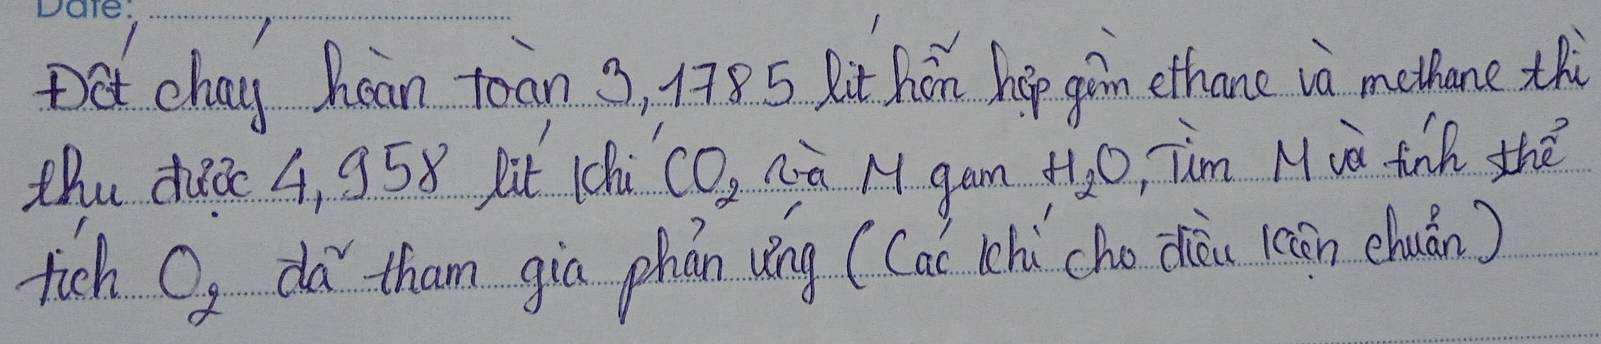 Date:
Đốt cháy hoàn toàn 3,1785 lít hỗn hợp gồm ethane và methane thì
thu được 4,958 lít khí CO₂ và M gam H₂O, Tìm M và tính thể
tích O₂ đã tham gia phản ứng (Các khí cho điều kiện chuẩn)